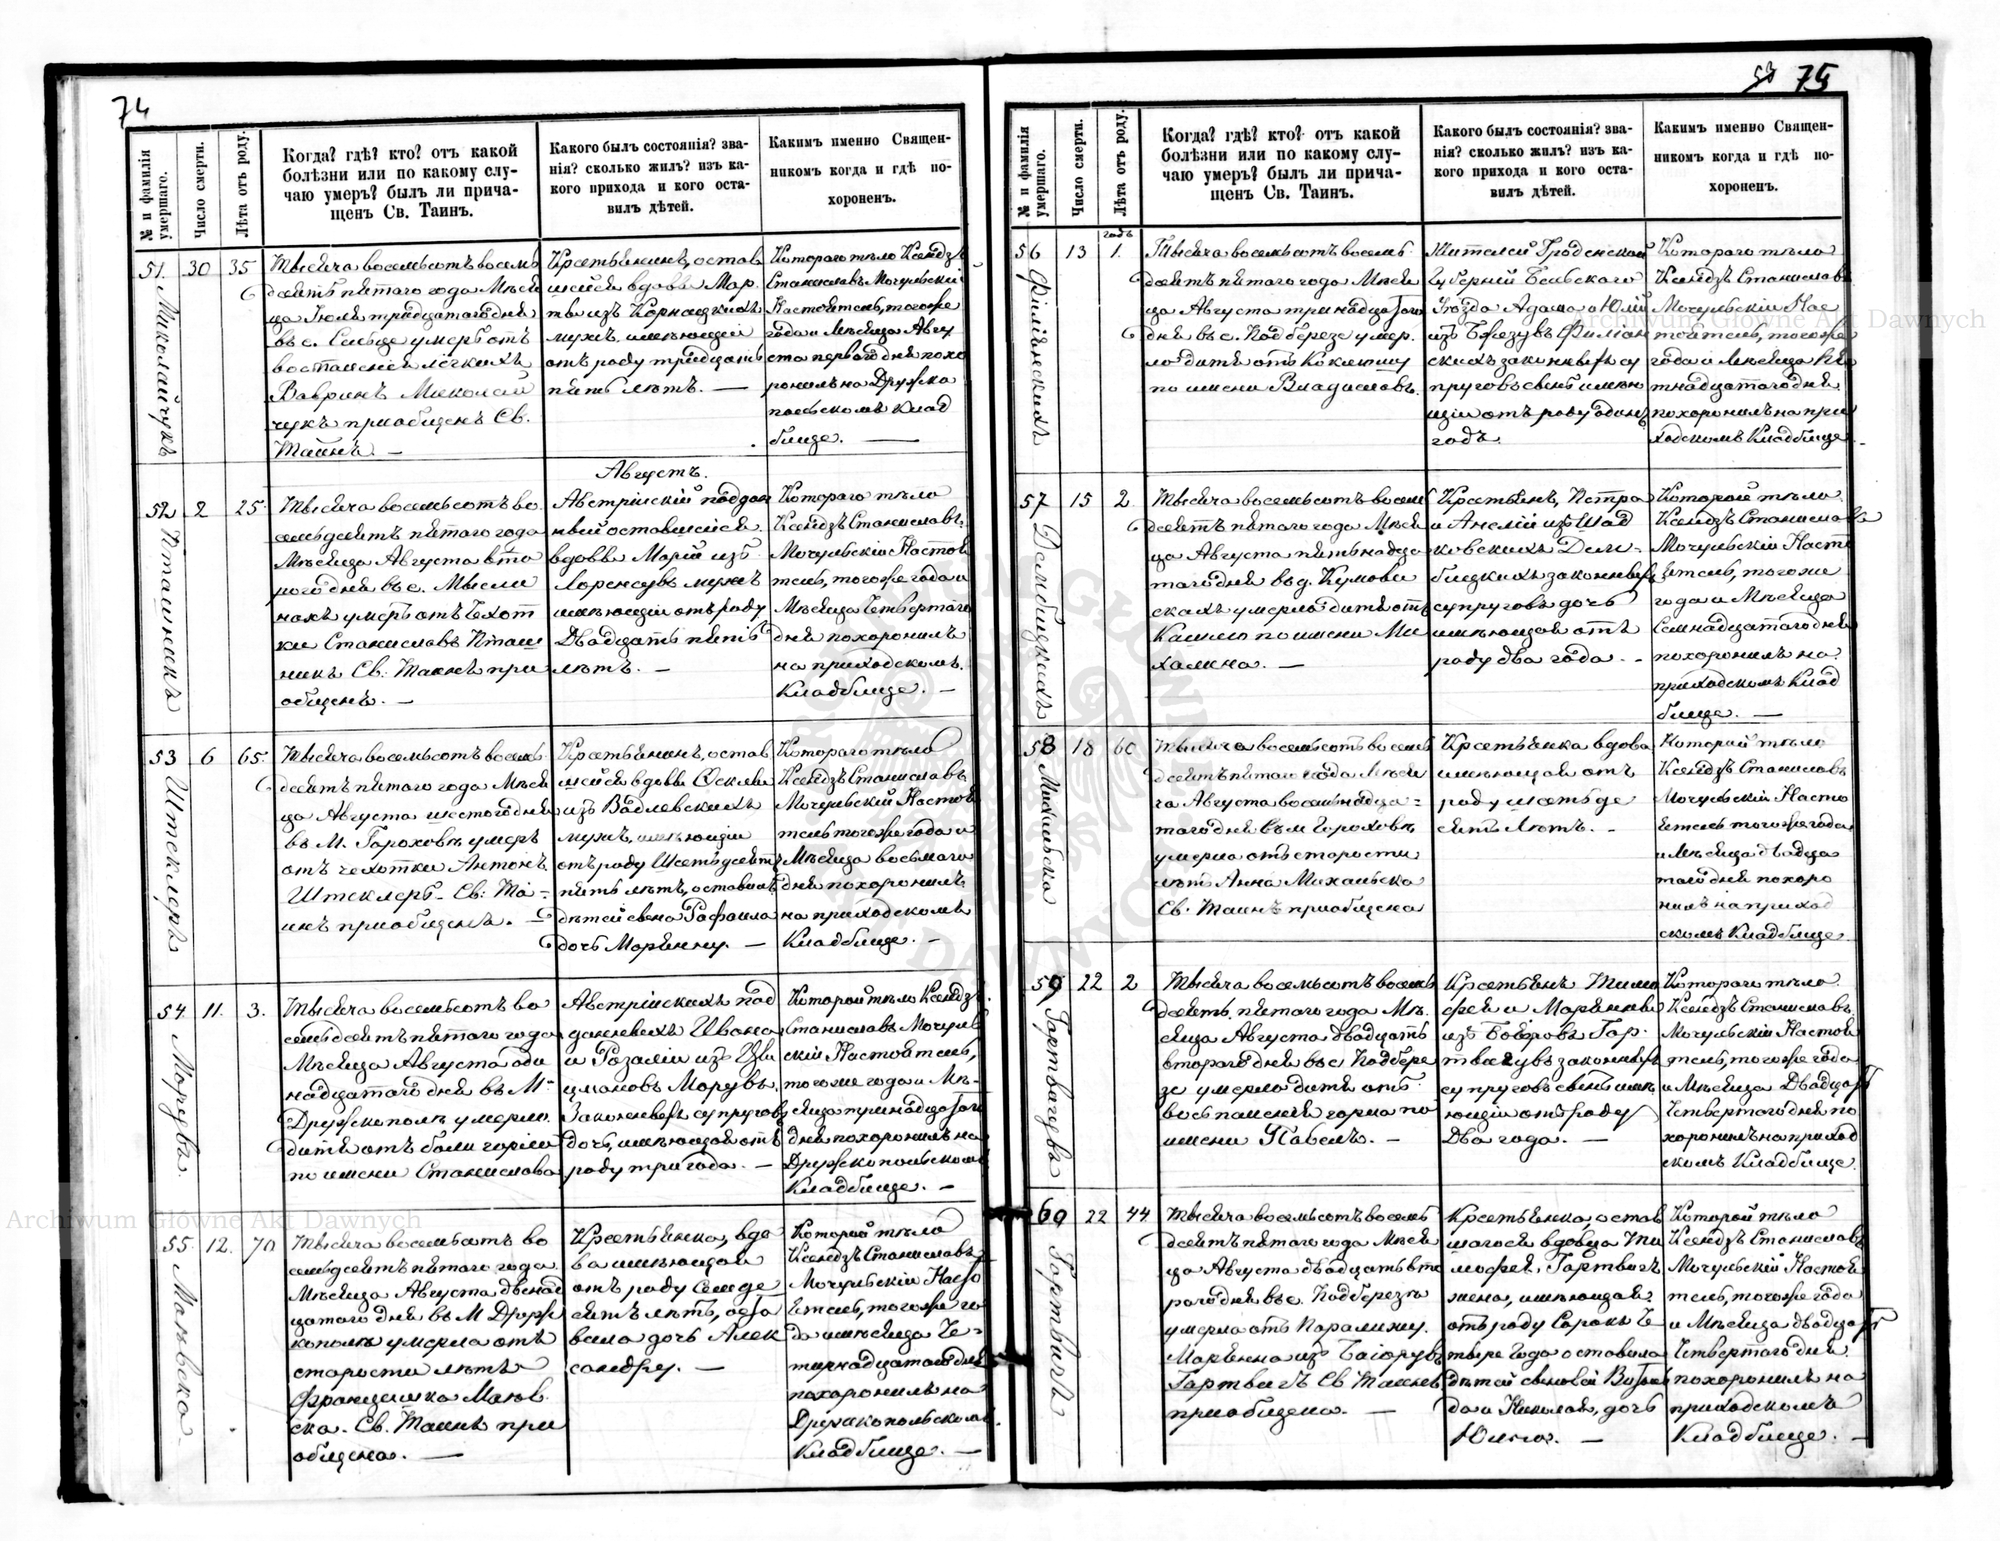 74
№ и фамилія умершаго.
Число смерти.
Лѣта отъ роду.
Когда? гдѣ? кто? отъ какой
болѣзни или по какому слу-
чаю умеръ? былъ ли прича-
щенъ Св. Таинъ.
Какого былъ состоянія? зва-
нія? сколько жилъ? изъ ка-
кого прихода и кого оста-
вилъ дѣтей.
Какимъ именно Священ-
никомъ когда и гдѣ по-
хороненъ.
51. Миколайчукъ
30
35
Тысяча восемьсотъ восемь
десятъ пятаго года Мѣся
ца Іюля тридцатаго дня
въ с. умеръ отъ
воспаленія лёгкихъ
Вавринъ Миколай
чукъ приобщенъ Св.
Таинъ. —
Крестьянинъ, остав
шійся вдовы Мар
ты изъ Корнацкихъ
мужъ, имѣющій
отъ роду тридцать
пять лѣтъ. —
Котораго тѣло Ксендзъ
Станиславъ Мочульскій
Настоятель, тогоже
года и Мѣсяца Авгу
ста перваго дня похо
ронилъ на Дружко
польскомъ клад
бище. —
Августъ.
52 Пташникъ
2
25
Тысяча восемьсотъ во
семьдесятъ пятаго года
Мѣсяца Августа вто
рого дня въ с. Мыши
нахъ умеръ отъ чехот
ки Станиславъ Пташ
никъ Св. Таинъ при
общенъ. —
Австрійскій поддан
ный оставшійся
вдовы Маріи изъ
мужъ
имѣющій отъ роду
Двадцать пять
лѣтъ. —
Котораго тѣло
Ксендзъ Станиславъ
Мочульскій Настоя
тель, тогоже года и
Мѣсяца четвертаго
дня похоронилъ
на приходскомъ
Кладбище. —
53 Штеклеръ
6
65
Тысяча восемьсотъ восемь
десятъ пятаго года Мѣся
ца Августа шестого дня
въ М. Гороховѣ умеръ
отъ чехотки Антонъ
Штеклеръ – Св: Та-
инъ приобщенъ. —
Крестьянинъ, остав
шійся вдовы
изъ Вадлевскихъ
мужъ, имѣющій
отъ роду Шестьдесятъ
пять лѣтъ, оставилъ
дѣтей сына Рафаила
дочь Марянну. —
Котораго тѣло
Ксендзъ Станиславъ
Мочульскій Настоя
тель тогоже года и
Мѣсяца восьмаго
дня похоронилъ
на приходскомъ
Кладбище. —
54. Марувъ.
11.
3.
Тысяча восемьсотъ во
семьдесятъ пятаго года
Мѣсяца Августа оди
надцатаго дня въ М.
Дружкополѣ умерло
дитя отъ боли горла
по имени Станислава
Австрійскихъ под
данныхъ Ивана
и Розаліи изъ
Марувъ
Законныхъ супруговъ
дочь, имѣющая отъ
роду три года. —
Которой тѣло Ксендзъ
Станиславъ Мочуль
скій Настоятель,
тогоже года и Мѣ-
сяца тринадцатаго
дня похоронилъ на
Дружкопольскомъ
Кладбище. —
55. Маевска
12.
70
Тысяча восемьсотъ во
семьдесятъ пятаго года
Мѣсяца Августа двенад
цатого дня въ М Друж
кополѣ умерла отъ
старости лѣтъ
Францишка Маев
ска. Св. Таинъ при
общена. —
Крестьянка, вдо
ва имѣющая
отъ роду Семьде
сятъ лѣтъ, оста
вила дочь Алек
сандру. —
Которой тѣло
Ксендзъ Станиславъ
Мочульскій Насто
ятель, тогоже го
да и мѣсяца Че-
тырнадцатаго дня
похоронилъ на
Дружкопольскомъ
Кладбище. —
75
№ и фамилія умершаго.
Число смерти.
Лѣта отъ роду.
Когда? гдѣ? кто? отъ какой
болѣзни или по какому слу-
чаю умеръ? былъ ли прича-
щенъ Св. Таинъ.
Какого былъ состоянія? зва-
нія? сколько жилъ? изъ ка-
кого прихода и кого оста-
вилъ дѣтей.
Какимъ именно Священ-
никомъ когда и гдѣ по-
хороненъ.
56
13
годъ
1.
Тысяча восемьсотъ восемь
десятъ пятаго года Мѣся
ца Августа тринадцатаго
дня въ с. Подберезе умер
ло дитя отъ Коклюшу
по имени Владиславъ.
Жителей Гродненской
Губерніи Бельского
Уѣзда Адама и Юліи
изъ
скихъ законныхъ су
пруговъ сынъ имѣю
щій отъ роду одинъ
годъ.
Котораго тѣло
Ксендзъ Станиславъ
Мочульскій Нас
тоятель, тогоже
года и Мѣсяца Пя
тнадцатаго дня
похоронилъ на при
ходскомъ Кладбище
57 Дембицкихъ
15
2
Тысяча восемьсотъ восемь
десятъ пятаго года Мѣся
ца Августа пятьнадца
таго дня въ д.
умерло дитя отъ
Кашлю по имени Ми
халина. —
Крестьянъ, Петра
и Анеліи изъ Шад
ковскихъ Дем-
бицкихъ законныхъ
супруговъ дочь
имѣющая отъ
роду два года. -
Которой тѣло
Ксендзъ Станиславъ
Мочульскій Насто
ятель, тогоже
года и Мѣсяца
Семнадцатаго дня
похоронилъ на
приходскомъ Клад
бище. —
58 Михальска
18
60
Тысяча восемьсотъ восемь
десятъ пятаго года Мѣся
ца Августа восемьнадца-
таго дня въ м Гороховѣ
умерла отъ старости
лѣтъ Анна Михальска
Св. Таинъ приобщена
Крестьянка вдова
имѣющая отъ
роду шестьде
сятъ лѣтъ. -
Которой тѣло
Ксендзъ Станиславъ
Мочульскій Насто
ятель тогоже года
и Мѣсяца двадца
таго дня похоро
нилъ на приход
скомъ Кладбище
59 Гартвигувъ
22
2
Тысяча восемьсотъ восемь
десятъ пятаго года Мѣ
сяца Августа двадцать
втораго дня въ с Подбере
зе умерло дитя отъ
воспаленія горла по
имени Павелъ. —
Крестьянъ Тимо
фея и Марянны
изъ Гар
твигувъ законныхъ
супруговъ сынъ имѣ
ющій отъ роду
Два года. —
Котораго тѣло
Ксендзъ Станиславъ
Мочульскій Настоя
тель, тогоже года
и Мѣсяца Двадцать
Четвертаго дня по
хоронилъ на приход
скомъ Кладбище.
60 Гартвигъ
22
44
Тысяча восемьсотъ восемь
десятъ пятаго года Мѣся
ца Августа двадцать вто
рого дня въ с. Подберезѣ
умерла отъ Паралижу
Марянна изъ
Гартвигъ Св Таинъ
приобщена. —
Крестьянка, остав
шагося вдовца Ти
мофея Гартвигъ
жена, имѣющая
отъ роду Сорокъ Че
тыре года оставила
дѣтей сыновей
да и Николая, дочь
Юлію. —
Которой тѣло
Ксендзъ Станиславъ
Мочульскій Настоя
тель, тогоже года
и Мѣсяца двадцать
Четвертаго дня
похоронилъ на
приходскомъ
Кладбище. —
Archiwum Główne Akt Dawnych
Archiwum Główne Akt Dawnych